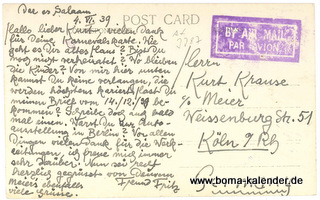 Dar es Salaam
4. VI. 39
POST CARD
BY AIR MAIL
PAR AVION
Hallo lieber Kurt, vielen Dank
für Deine Karnevalskarte. Wie
geht es Dir altes Haus? Bist Du
noch nicht verheiratet? Wo bleiben
die Kinder? Von mir hier unten
kannst Du keine verlangen. Sie
werden
meinen Brief vom 14./12./38 be-
kommen? Schreibe doch auch bald
mal. Warst Du der Auto-
ausstellung in Berlin? Vor allen
Dingen vielen Dank für die
ich freue mich immer
sehr darüber. Nun sei recht
herzlich gegrüsst von Deinem
Freund Fritz
viele Grüsse.
Herrn
Kurt Krause
c/o Meier
Weissenburg Str. 51
Köln a/Rh
Germany
www.boma-kalender.de